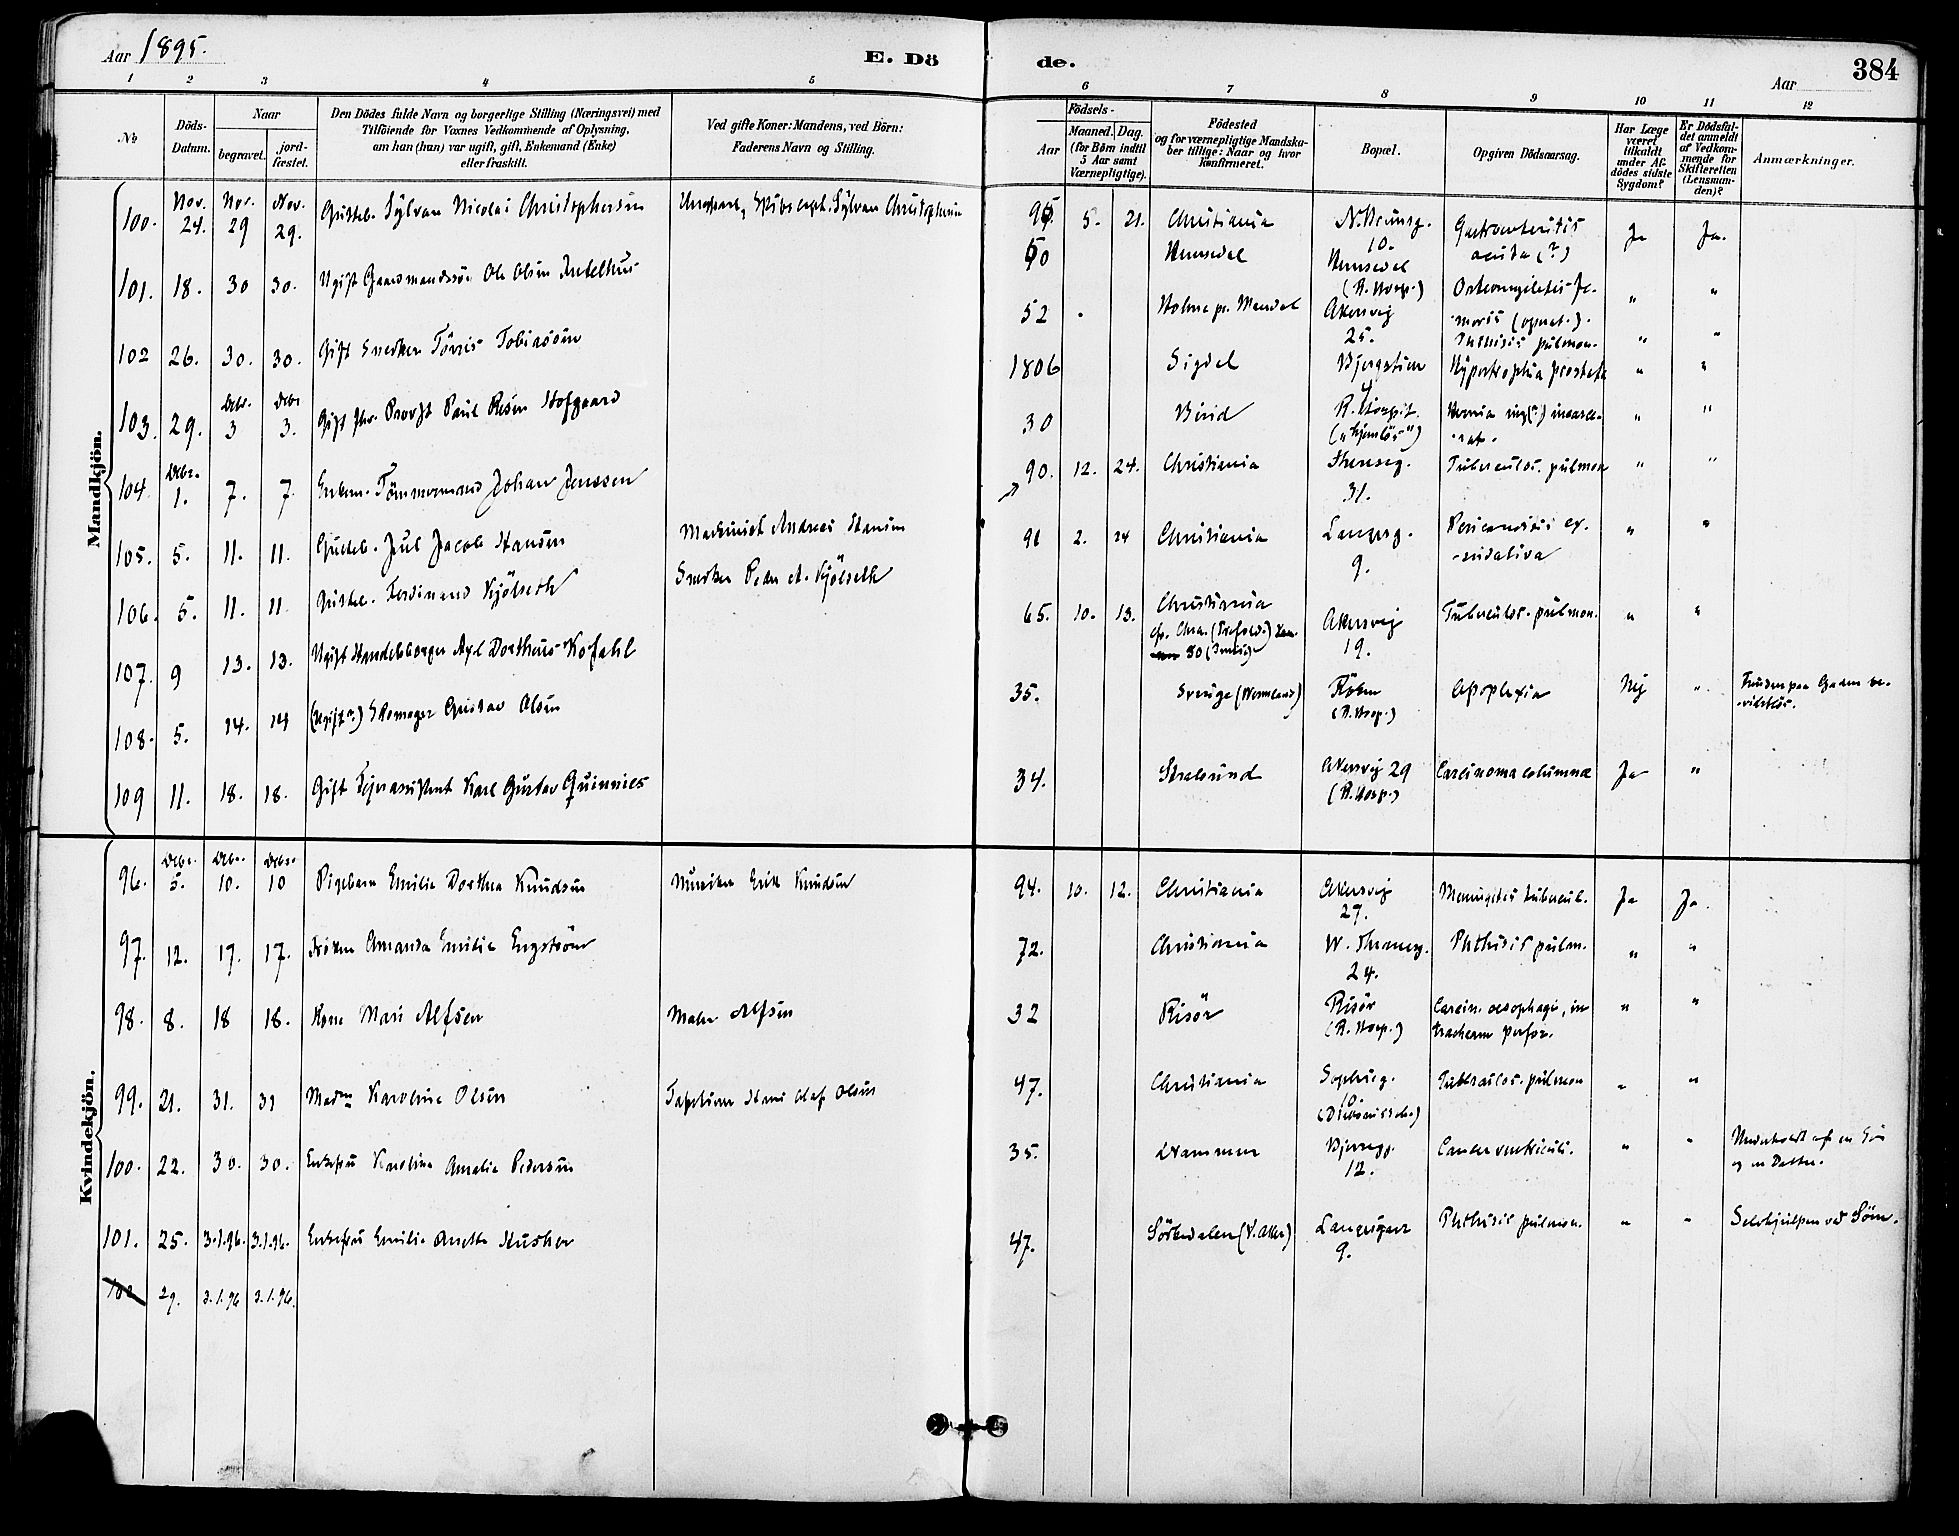 Aar 1895.
E. Dö
de.
Aar
384
1 2 3 4 5 6 7 8 9 10 11 12
No
Döds-
Datum.
Naar
begravet.
jord-
fæstet.
Den Dödes fulde Navn og borgerlige Stilling (Næringsvei) med
Tilföiende for Voxnes Vedkommende af Oplysning,
om han (hun) var ugift, gift, Enkemand (Enke)
eller fraskilt.
Ved gifte Koner: Mandens, ved Börn:
Faderens Navn og Stilling.
Födsels-
Aar
Maaned. Dag.
(for Börn indtil
5 Aar samt
Værnepligtige).
Födested
og for værnepligtige Mandska-
ber tillige: Naar og hvor
konfirmeret.
Bopæl.
Opgiven Dödsaarsag.
Har Læge
været
tilkaldt
under Af-
dödes sidste
Sygdom?
Er Dödsfal-
det anmeldt
af Vedkom-
mende for
Skifteretten
(Lensman-
den)?
Anmærkninger.
Mandkjön.
100. Nov. 24. Nov. 29 Nov. 29. Gutteb. Sylvan Nicolai Christophersen Sylvan Christophersen 95. 5. 21. Christiania 10. Gastroenteritis acuta (?) Ja Ja.
101. 18. 30 30. Ugift Gaardmandssøn Ole Olsen 50 Hemsedal Hemsedal (R. Hosp.) Osteomyelitis fe-
moris (operat.). " "
102 26. 30. 30. Gift Snedker Tørris Tobiassen 52 Holme pr. Mandal Akersvej 25. Phthisis pulmon. " "
103. 29. Debr. 3 Debr 3. Gift fhv. Provst Paul Resen Hofgaard 1806 Sigdal Bjergstien Hypertrophia prostatæ " "
104. Debr. 1. 7. 7. Enkem. Tømmermand Johan Jenssen 30 Birid R. Hospit. Hernia ing(?) incarce-
rat. " "
105. 5. 11. 11. Gutteb. Juul Jacob Hansen Maskinist Andreas Hansen 90. 12. 24. Christiania 31. Tuberculos. pulmon " "
106. 5. 11. 11. Gutteb. Ferdinand Kjölseth Snedker Peder A. Kjölseth 91 2. 24 Christiania Langesg. 9. Pericarditis ex-
sudativa " "
107. 9 13. 13. Ugift Handelsborger Axel Dortheus Kofahl 65. 10. 13. Christiania 80 Akersvej 19. Tuberculos. pulmon. " "
108. 5. 14. 14 (Ugift?) Skomager Gustav Olsen 35. Sverige (Wermland) (R. Hosp.) Apoplexia Nej " Funden paa Gaden be-
vidstløs.
109 11. 18. 18. Gift Karl Gustav Quinnies 34. Stralsund Akersvej 29 (R. Hosp.) Carcinoma columnæ Ja "
Kvindekjön.
96. Debr. 5. Debr. 10. Debr. 10 Pigebarn Emilie Dorthea Knudsen Musiker Erik Knudsen 94. 10. 12. Christiania Akersvej 27. Meningitis tubercul. Ja Ja.
97. 12. 17. 17. Frøken Amanda Emilie Engström 72. Christiania W. Thranesg. 24. Phthisis pulm. " "
98. 8. 18 18. Kone Mari Alfsen Maler Alfsen 32 Risör Risör (R. Hosp.) Carcin. oesophagi, in
tracheam perfor. " "
99. 21. 31. 31 Madm Karoline Olsen Tapetserer Hans Olaf Olsen 47. Christiania Sophieg. 10. Tuberculos. pulmon " "
100. 22. 30. 30. Enkefru Karoline Amalie Pedersen 35. Drammen 12. Cancer ventriculi. " " Underholdt af en Søn
og en Datter.
101. 25. 3.1.96. 3.1.96. Enkefru Emilie Anette Husher 47. Sörkedalen (V. Aker) Langesgade 9. Phthisis pulmon. " " Selvhjulpen ved Søm.
102 29. 3.1.96 3.1.96.